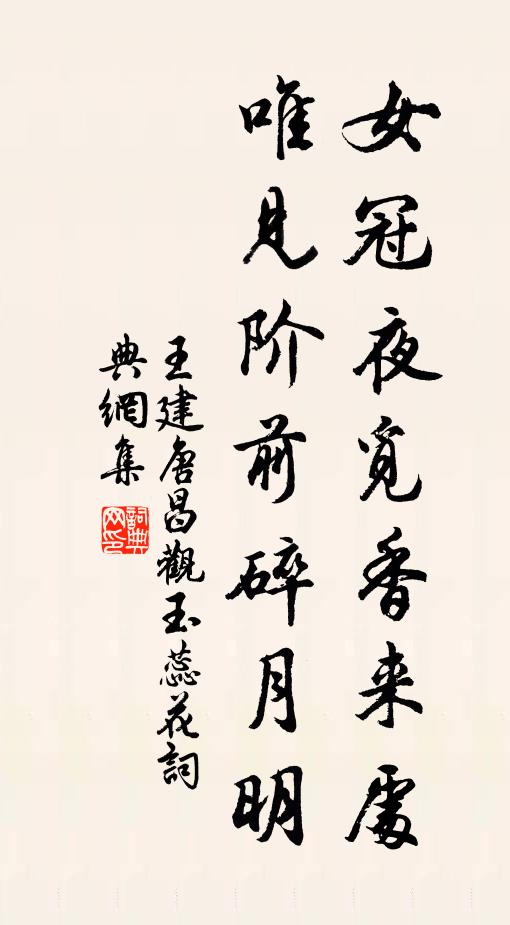 女冠夜觅香来處
唯见阶前碎月明
王建唐昌觀玉蕊花詞
典網集
詞典网印